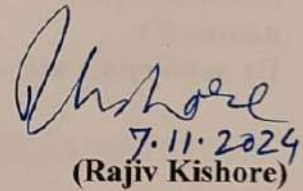 RKishore
7.11.2024
(Rajiv Kishore)